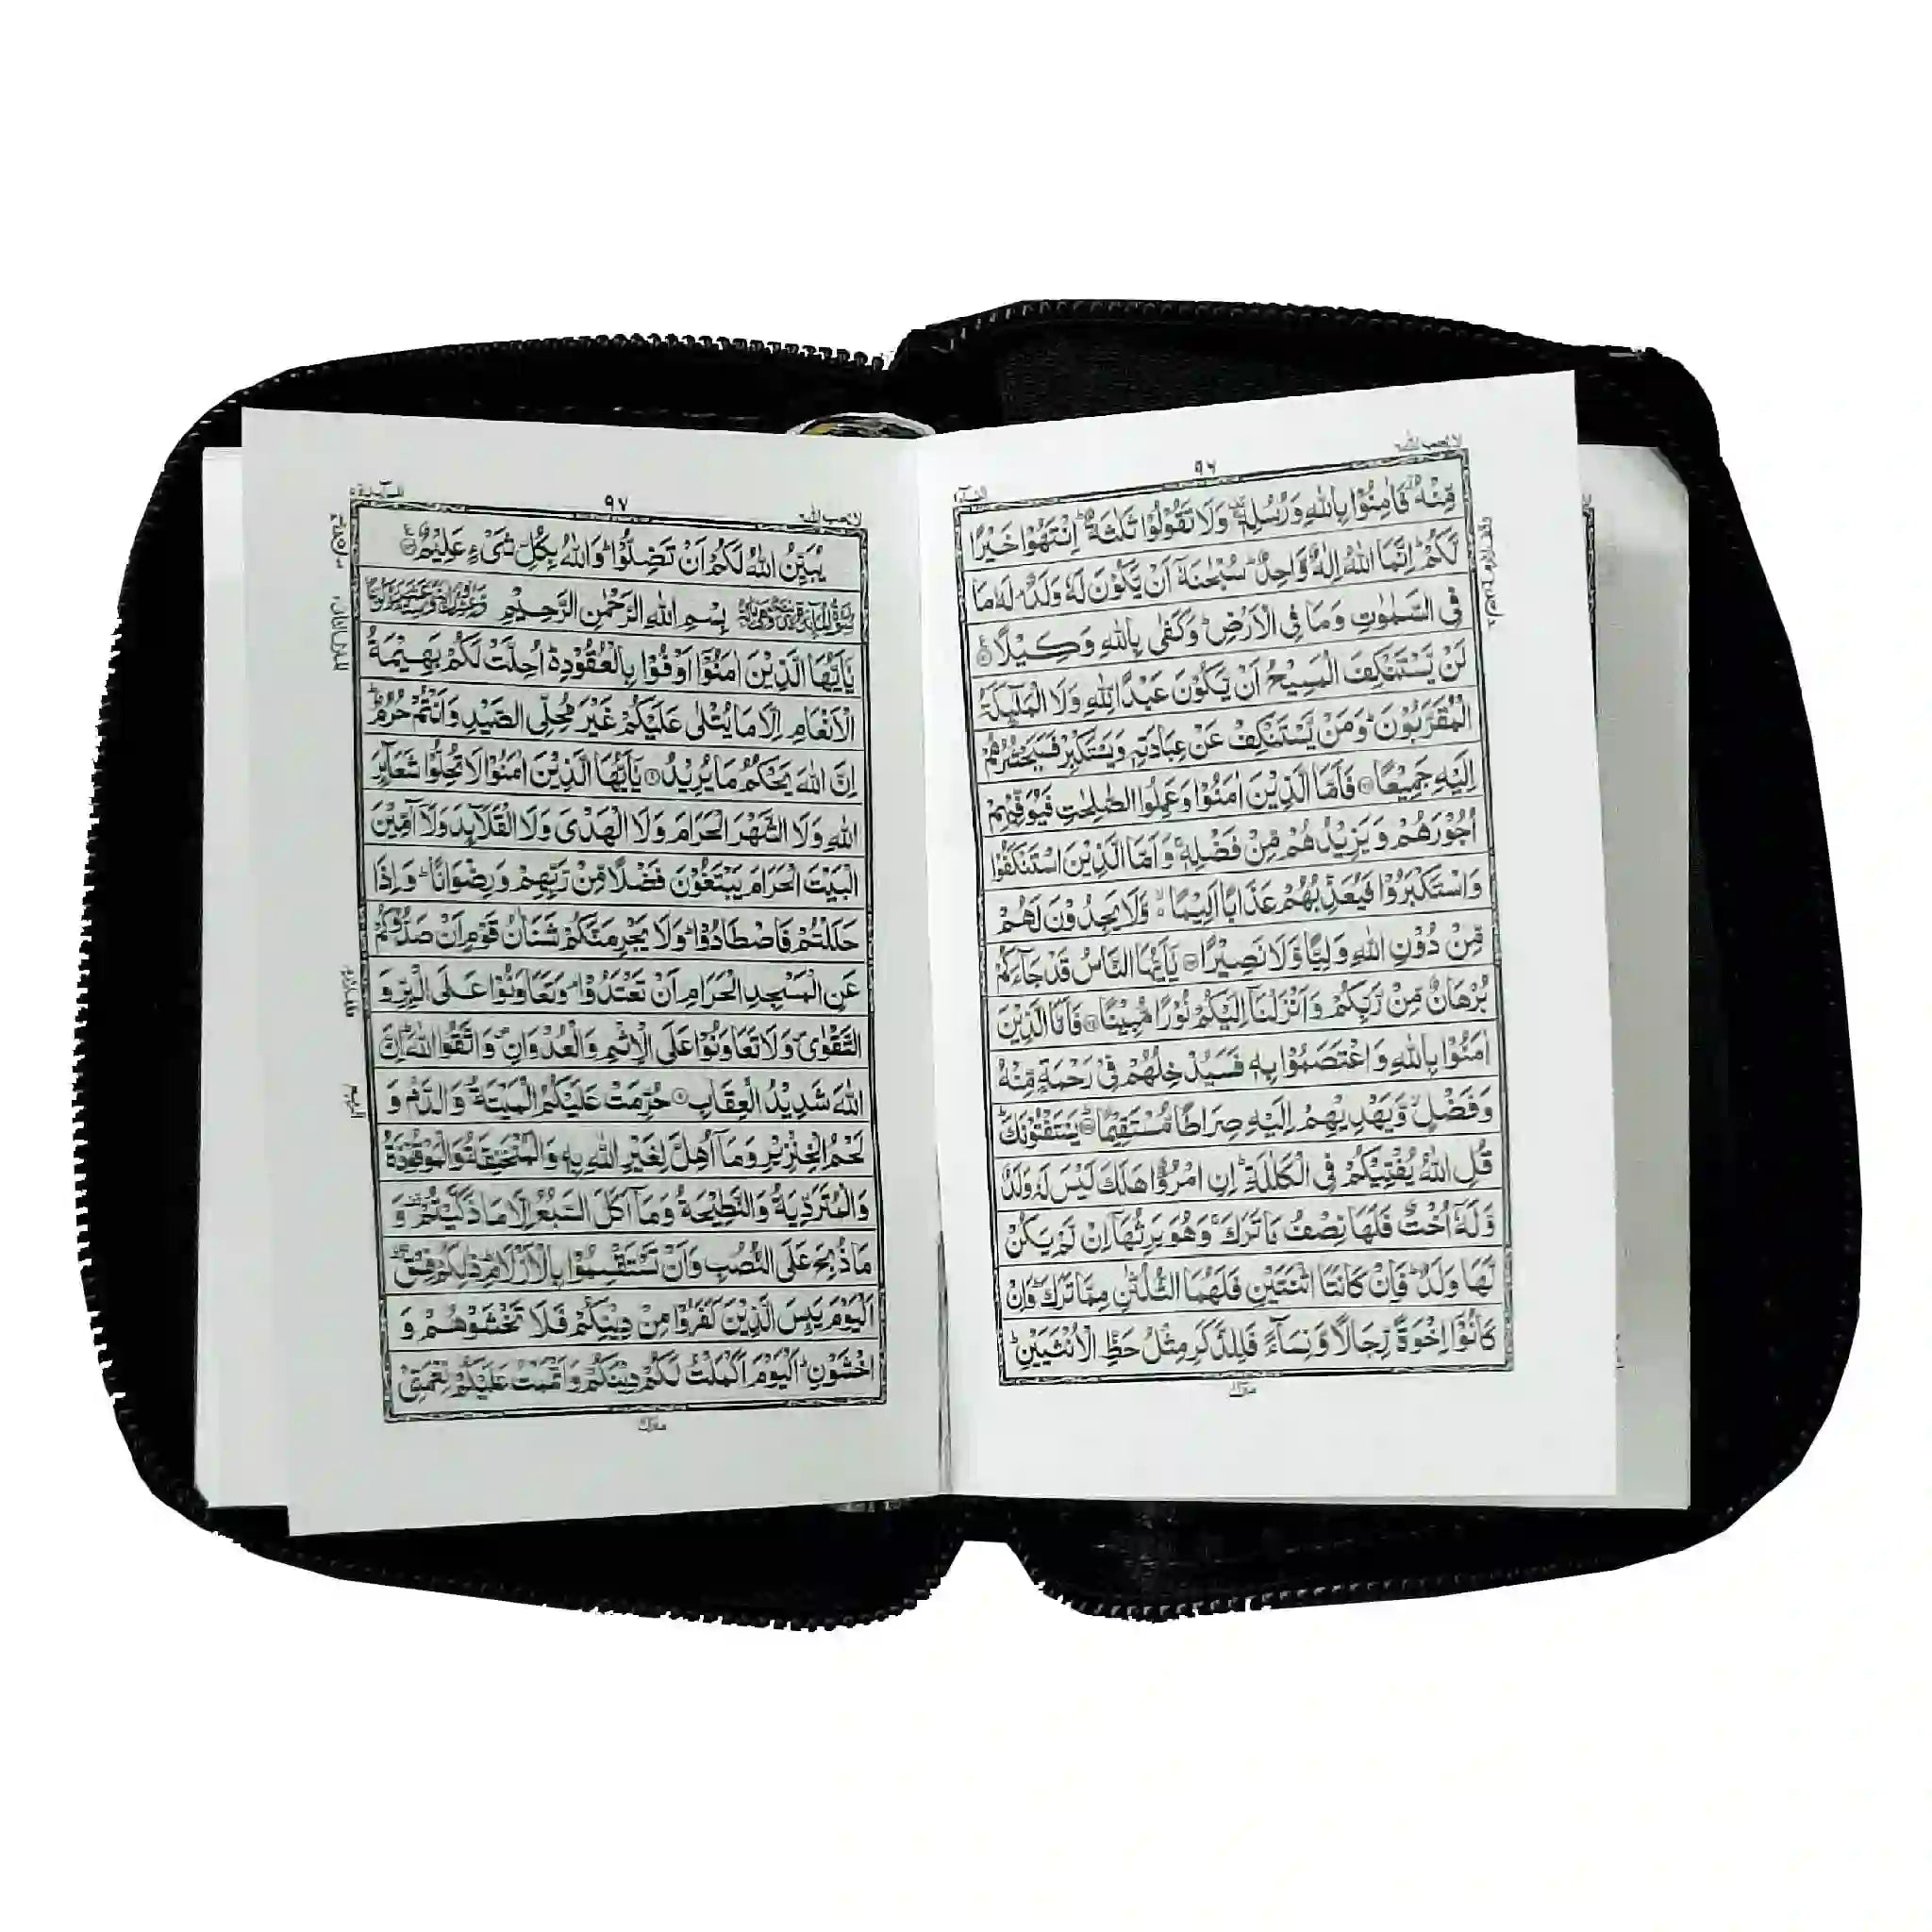 لا يحب الله ٦
٩٦
النسآء ٤
مِّنْهُ ۫ فَاٰمِنُوْا بِاللّٰهِ وَرُسُلِهٖ ۚ وَلَا تَقُوْلُوْا ثَلٰثَةٌ ؕ اِنْتَهُوْا خَيْرًا
لَّكُمْ ؕ اِنَّمَا اللّٰهُ اِلٰهٌ وَّاحِدٌ ؕ سُبْحٰنَهٗۤ اَنْ يَّكُوْنَ لَهٗ وَلَدٌ ۘ لَهٗ مَا
فِى السَّمٰوٰتِ وَمَا فِى الْاَرْضِ ؕ وَكَفٰى بِاللّٰهِ وَكِيْلًا
لَنْ يَّسْتَنْكِفَ الْمَسِيْحُ اَنْ يَّكُوْنَ عَبْدًا لِّلّٰهِ وَلَا الْمَلٰٓئِكَةُ
الْمُقَرَّبُوْنَ ؕ وَمَنْ يَّسْتَنْكِفْ عَنْ عِبَادَتِهٖ وَيَسْتَكْبِرْ فَسَيَحْشُرُهُمْ
اِلَيْهِ جَمِيْعًا ﴿۱۷۲﴾ فَاَمَّا الَّذِيْنَ اٰمَنُوْا وَعَمِلُوا الصّٰلِحٰتِ فَيُوَفِّيْهِمْ
اُجُوْرَهُمْ وَيَزِيْدُهُمْ مِّنْ فَضْلِهٖ ۚ وَاَمَّا الَّذِيْنَ اسْتَنْكَفُوْا
وَاسْتَكْبَرُوْا فَيُعَذِّبُهُمْ عَذَابًا اَلِيْمًا ۙ وَّلَا يَجِدُوْنَ لَهُمْ
مِّنْ دُوْنِ اللّٰهِ وَلِيًّا وَّلَا نَصِيْرًا ﴿۱۷۳﴾ يٰۤاَيُّهَا النَّاسُ قَدْ جَآءَكُمْ
بُرْهَانٌ مِّنْ رَّبِّكُمْ وَاَنْزَلْنَاۤ اِلَيْكُمْ نُوْرًا مُّبِيْنًا ﴿۱۷۴﴾ فَاَمَّا الَّذِيْنَ
اٰمَنُوْا بِاللّٰهِ وَاعْتَصَمُوْا بِهٖ فَسَيُدْخِلُهُمْ فِىْ رَحْمَةٍ مِّنْهُ
وَفَضْلٍ ۙ وَّيَهْدِيْهِمْ اِلَيْهِ صِرَاطًا مُّسْتَقِيْمًا ﴿۱۷۵﴾ يَسْتَفْتُوْنَكَ ؕ
قُلِ اللّٰهُ يُفْتِيْكُمْ فِى الْكَلٰلَةِ ؕ اِنِ امْرُؤٌا هَلَكَ لَيْسَ لَهٗ وَلَدٌ
وَّلَهٗۤ اُخْتٌ فَلَهَا نِصْفُ مَا تَرَكَ ۚ وَهُوَ يَرِثُهَاۤ اِنْ لَّمْ يَكُنْ
لَّهَا وَلَدٌ ؕ فَاِنْ كَانَتَا اثْنَتَيْنِ فَلَهُمَا الثُّلُثٰنِ مِمَّا تَرَكَ ؕ وَاِنْ
كَانُوْۤا اِخْوَةً رِّجَالًا وَّنِسَآءً فَلِلذَّكَرِ مِثْلُ حَظِّ الْاُنْثَيَيْنِ ؕ
منزل ١
لا يحب الله ٦
٩٧
المآئدة ٥
يُبَيِّنُ اللّٰهُ لَكُمْ اَنْ تَضِلُّوْا ؕ وَاللّٰهُ بِكُلِّ شَىْءٍ عَلِيْمٌ
بِسْمِ اللّٰهِ الرَّحْمٰنِ الرَّحِيْمِ
يٰۤاَيُّهَا الَّذِيْنَ اٰمَنُوْۤا اَوْفُوْا بِالْعُقُوْدِ ؕ اُحِلَّتْ لَكُمْ بَهِيْمَةُ
الْاَنْعَامِ اِلَّا مَا يُتْلٰى عَلَيْكُمْ غَيْرَ مُحِلِّى الصَّيْدِ وَاَنْتُمْ حُرُمٌ ؕ
اِنَّ اللّٰهَ يَحْكُمُ مَا يُرِيْدُ ﴿۱﴾ يٰۤاَيُّهَا الَّذِيْنَ اٰمَنُوْا لَا تُحِلُّوْا شَعَآئِرَ
اللّٰهِ وَلَا الشَّهْرَ الْحَرَامَ وَلَا الْهَدْىَ وَلَا الْقَلَآئِدَ وَلَاۤ آٰمِّيْنَ
الْبَيْتَ الْحَرَامَ يَبْتَغُوْنَ فَضْلًا مِّنْ رَّبِّهِمْ وَرِضْوَانًا ؕ وَاِذَا
حَلَلْتُمْ فَاصْطَادُوْا ؕ وَلَا يَجْرِمَنَّكُمْ شَنَاٰنُ قَوْمٍ اَنْ صَدُّوْكُمْ
عَنِ الْمَسْجِدِ الْحَرَامِ اَنْ تَعْتَدُوْا ۘ وَتَعَاوَنُوْا عَلَى الْبِرِّ وَ
التَّقْوٰى ۪ وَلَا تَعَاوَنُوْا عَلَى الْاِثْمِ وَالْعُدْوَانِ ۪ وَاتَّقُوا اللّٰهَ ؕ اِنَّ
اللّٰهَ شَدِيْدُ الْعِقَابِ ﴿۲﴾ حُرِّمَتْ عَلَيْكُمُ الْمَيْتَةُ وَالدَّمُ وَ
لَحْمُ الْخِنْزِيْرِ وَمَاۤ اُهِلَّ لِغَيْرِ اللّٰهِ بِهٖ وَالْمُنْخَنِقَةُ وَالْمَوْقُوْذَةُ
وَالْمُتَرَدِّيَةُ وَالنَّطِيْحَةُ وَمَاۤ اَكَلَ السَّبُعُ اِلَّا مَا ذَكَّيْتُمْ ۫ وَ
مَا ذُبِحَ عَلَى النُّصُبِ وَاَنْ تَسْتَقْسِمُوْا بِالْاَزْلَامِ ؕ ذٰلِكُمْ فِسْقٌ ؕ
اَلْيَوْمَ يَئِسَ الَّذِيْنَ كَفَرُوْا مِنْ دِيْنِكُمْ فَلَا تَخْشَوْهُمْ وَ
اخْشَوْنِ ؕ اَلْيَوْمَ اَكْمَلْتُ لَكُمْ دِيْنَكُمْ وَاَتْمَمْتُ عَلَيْكُمْ نِعْمَتِىْ